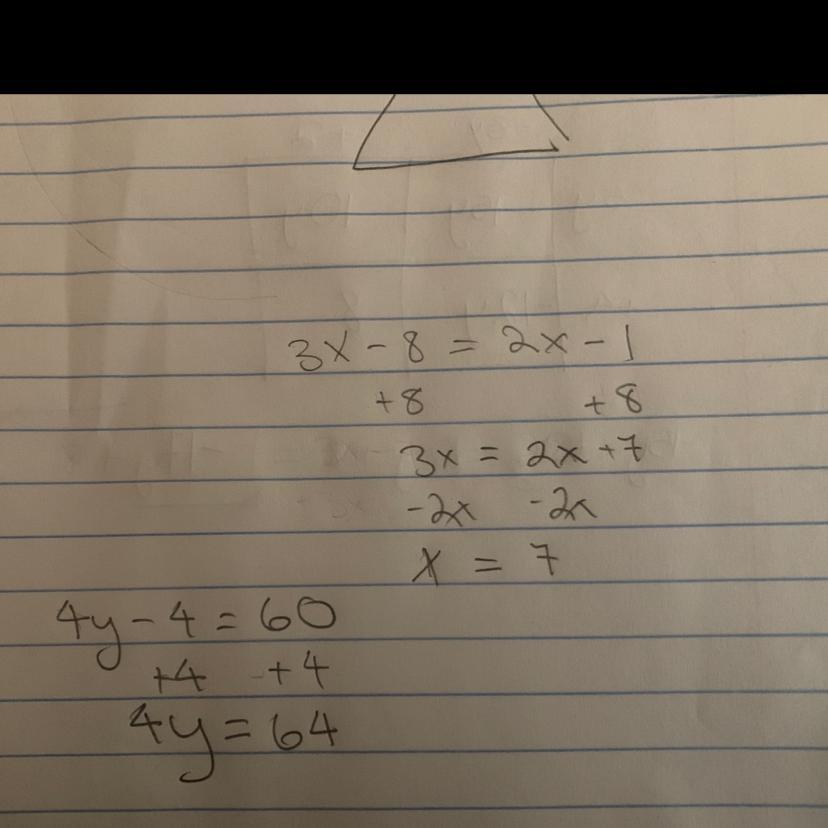 3x - 8 = 2x - 1
+8 +8
3x = 2x + 7
-2x -2x
x = 7
4y - 4 = 60
+4 +4
4y = 64